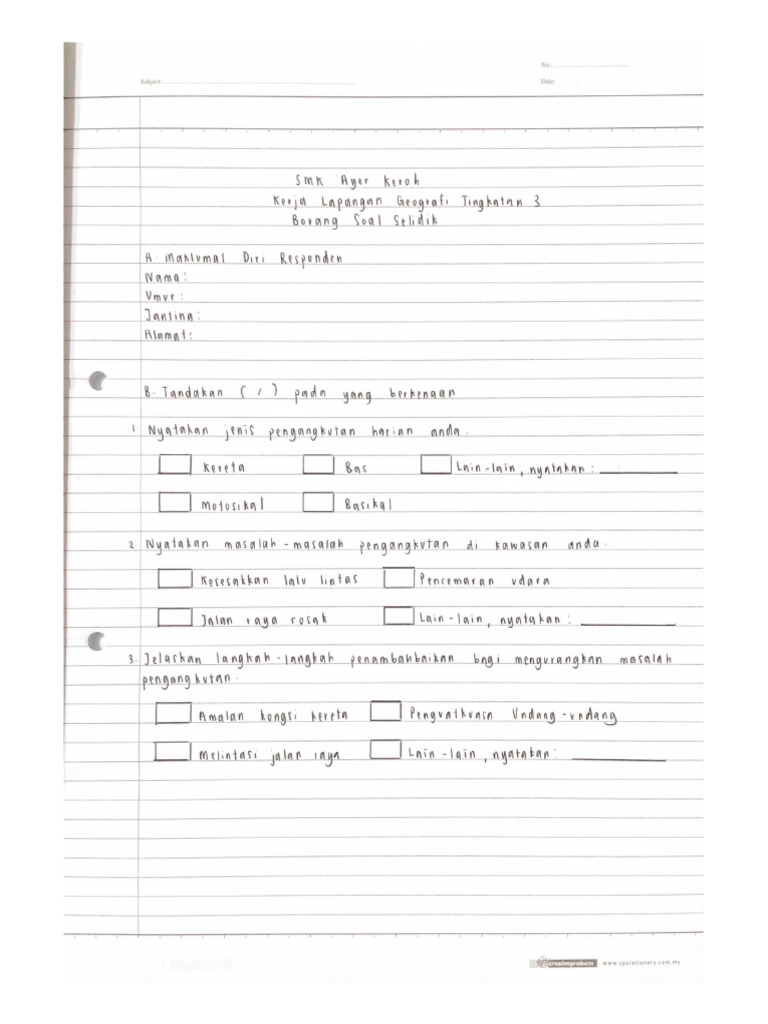 No:
Subject:
Date:
SMK Ayer Keroh
Kerja Lapangan Geografi Tingkatan 3
Borang Soal Selidik
A. Maklumat Diri Responden
Nama:
Umur:
Jantina:
Alamat:
B. Tandakan ( / ) pada yang berkenaan
1. Nyatakan jenis pengangkutan harian anda.
Kereta Bas Lain-lain, nyatakan:
Motosikal Basikal
2. Nyatakan masalah-masalah pengangkutan di kawasan anda.
Kesesakkan lalu lintas Pencemaran udara
Jalan raya rosak Lain-lain, nyatakan:
3. Jelaskan langkah-langkah penambahbaikan bagi mengurangkan masalah
pengangkutan.
Amalan kongsi kereta Penguatkuasa Undang-undang
Melintasi jalan raya Lain-lain, nyatakan:
creativeproducts www.cpstationery.com.my